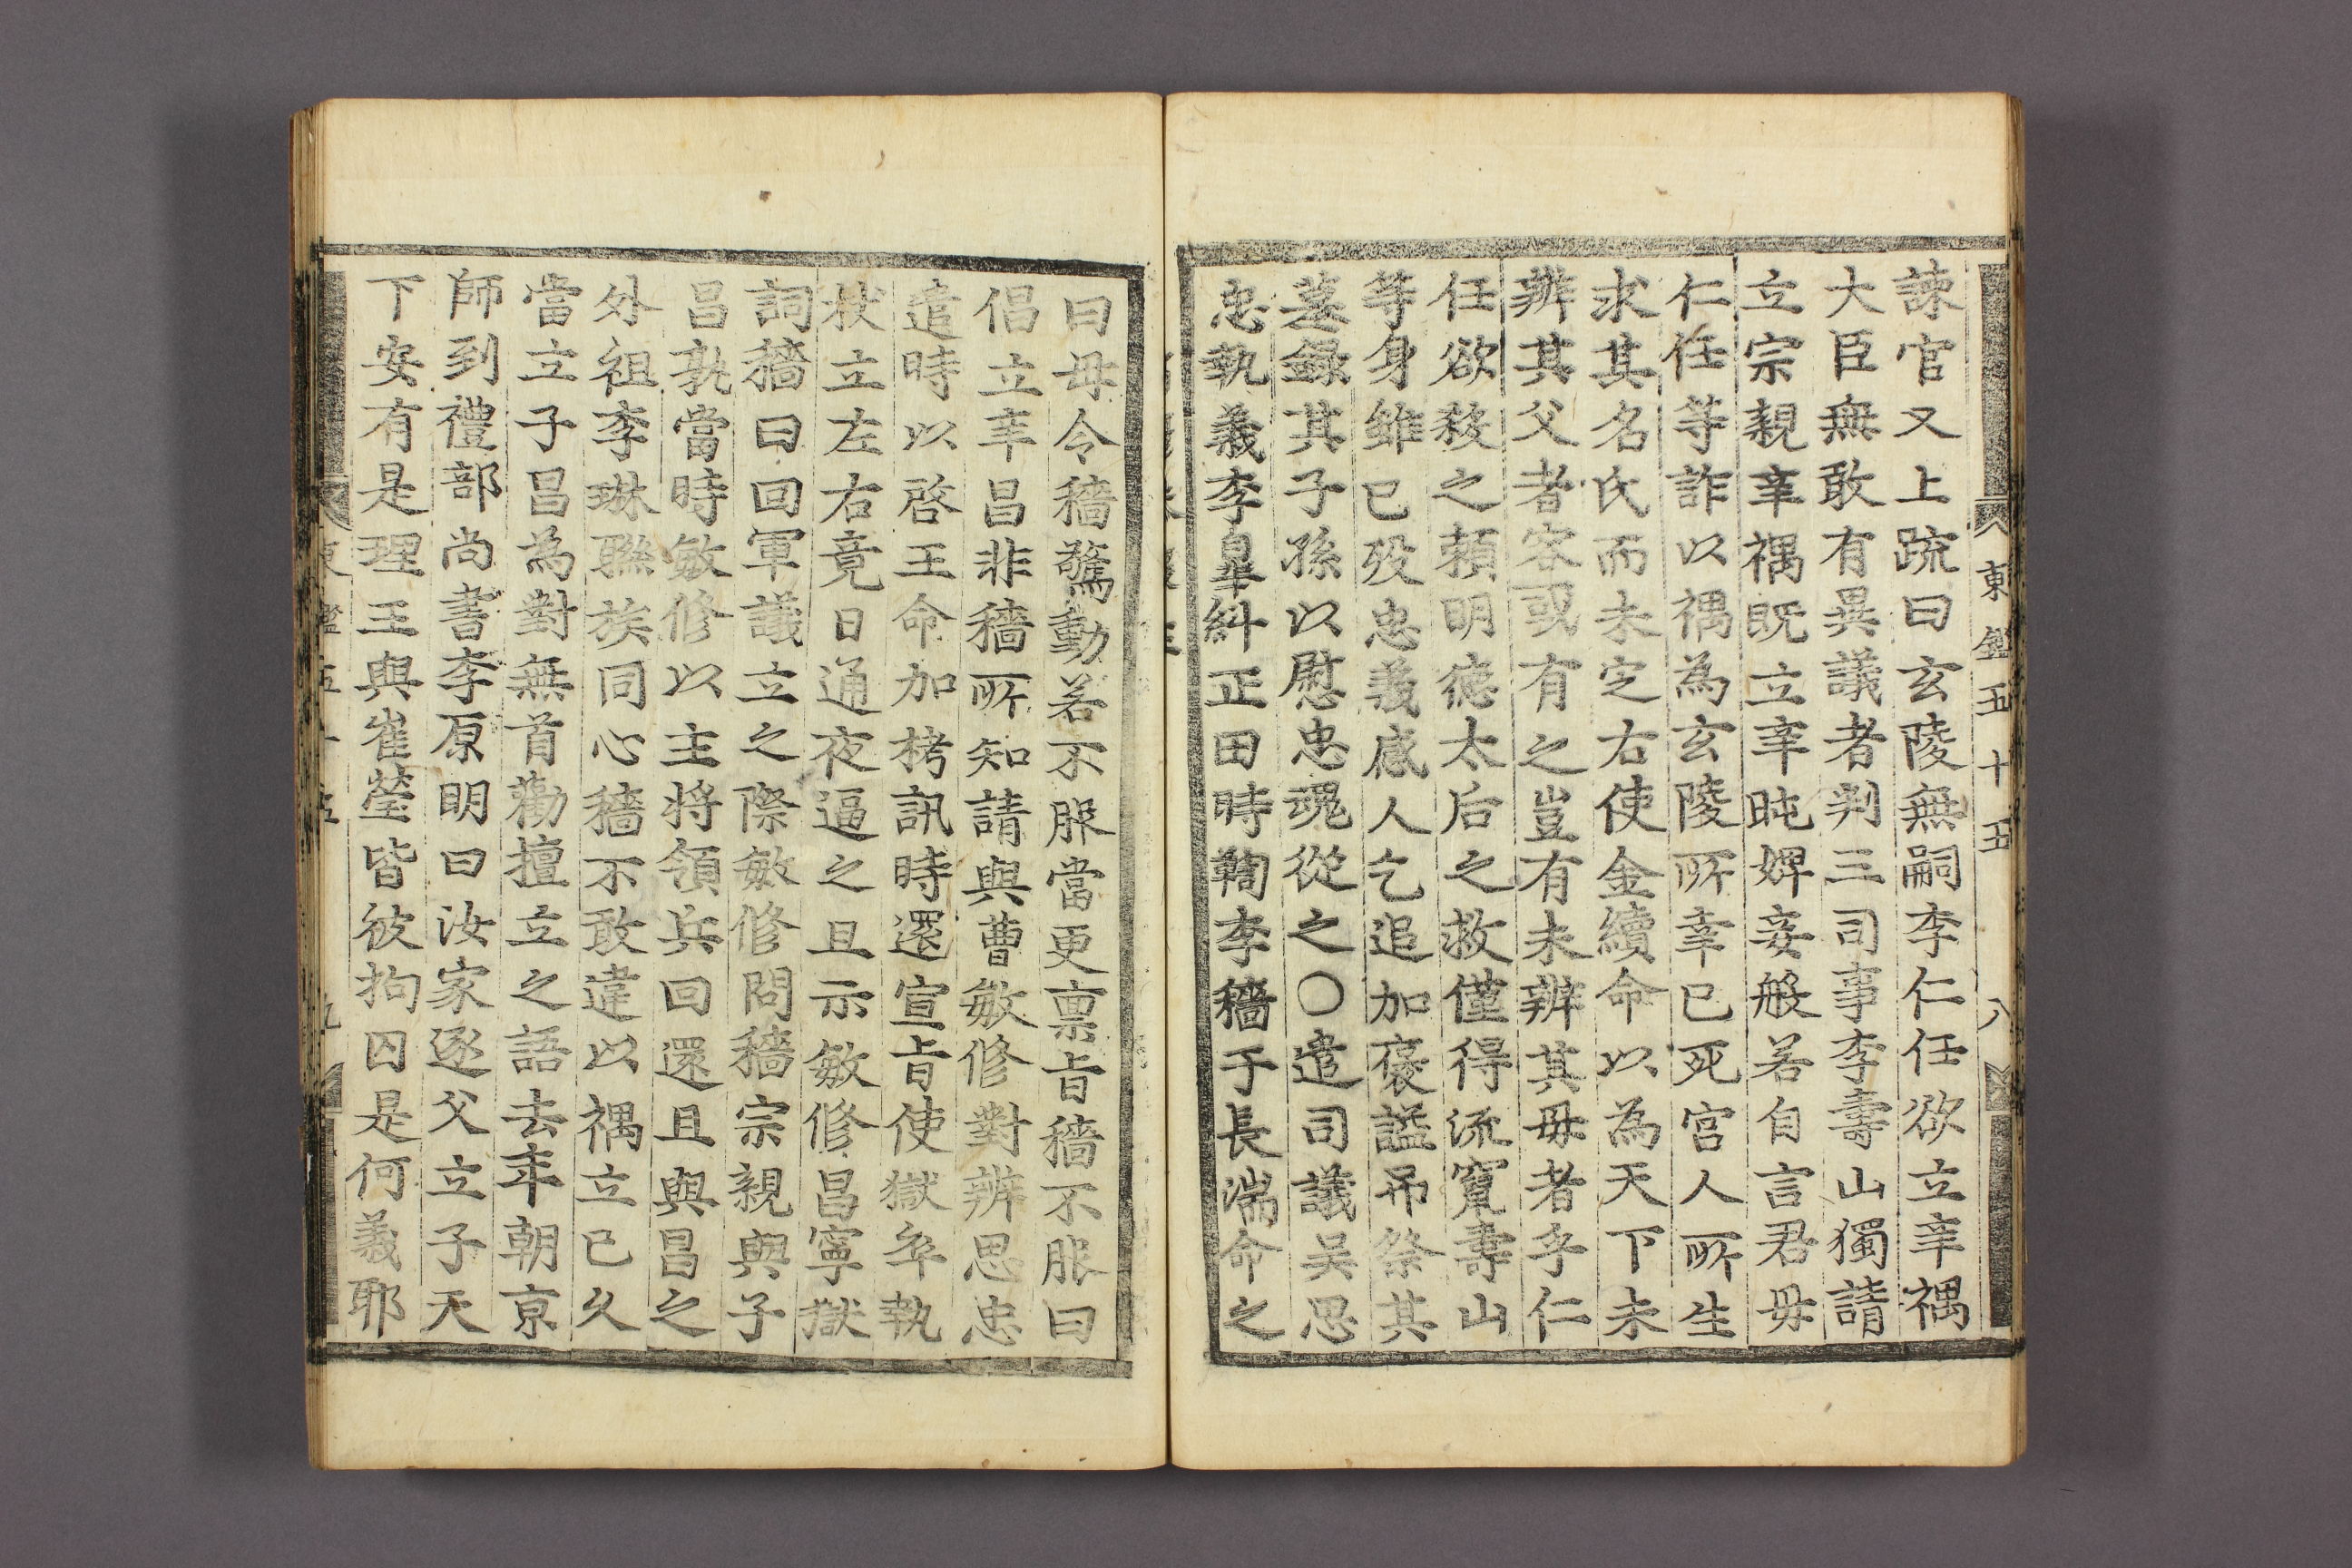 東鑑五十五 八
諫官又上䟽曰玄陵無嗣李仁任欲立辛禑
大臣無敢有異議者判三司事李壽山獨請
立宗親辛禑既立辛旽婢妾般若自言君毋
仁任等詐以禑為玄陵所幸已死宫人所生
求其名氏而未定右使金續命以為天下未
辨其父者容或有之豈有未辨其毋者乎仁
任欲殺之頼明德太后之救僅得流竄壽山
等身雖已歿忠義感人乞追加褒謚吊祭其
墓録其子孫以慰忠魂從之○遣司議吳思
忠執義李皐糾正田時鞫李穡于長湍命之
曰毋令穡驚動若不服當更禀旨穡不服曰
倡立辛昌非穡所知請與曹敏修對辨思忠
遣時以啓王命加栲訊時還宣旨使獄卒執
狀立左右竟日通夜逼之且示敏修昌寧獄
詞穡曰回軍議立之際敏修問穡宗親與子
昌孰當時敏修以主將領兵回還且與昌之
外祖李琳聫族同心穡不敢違以禑立已久
當立子昌為對無首勸擅立之語去年朝京
師到禮部尚書李原明曰汝家逐父立子天
下安有是理王與崔瑩皆彼拘囚是何義耶